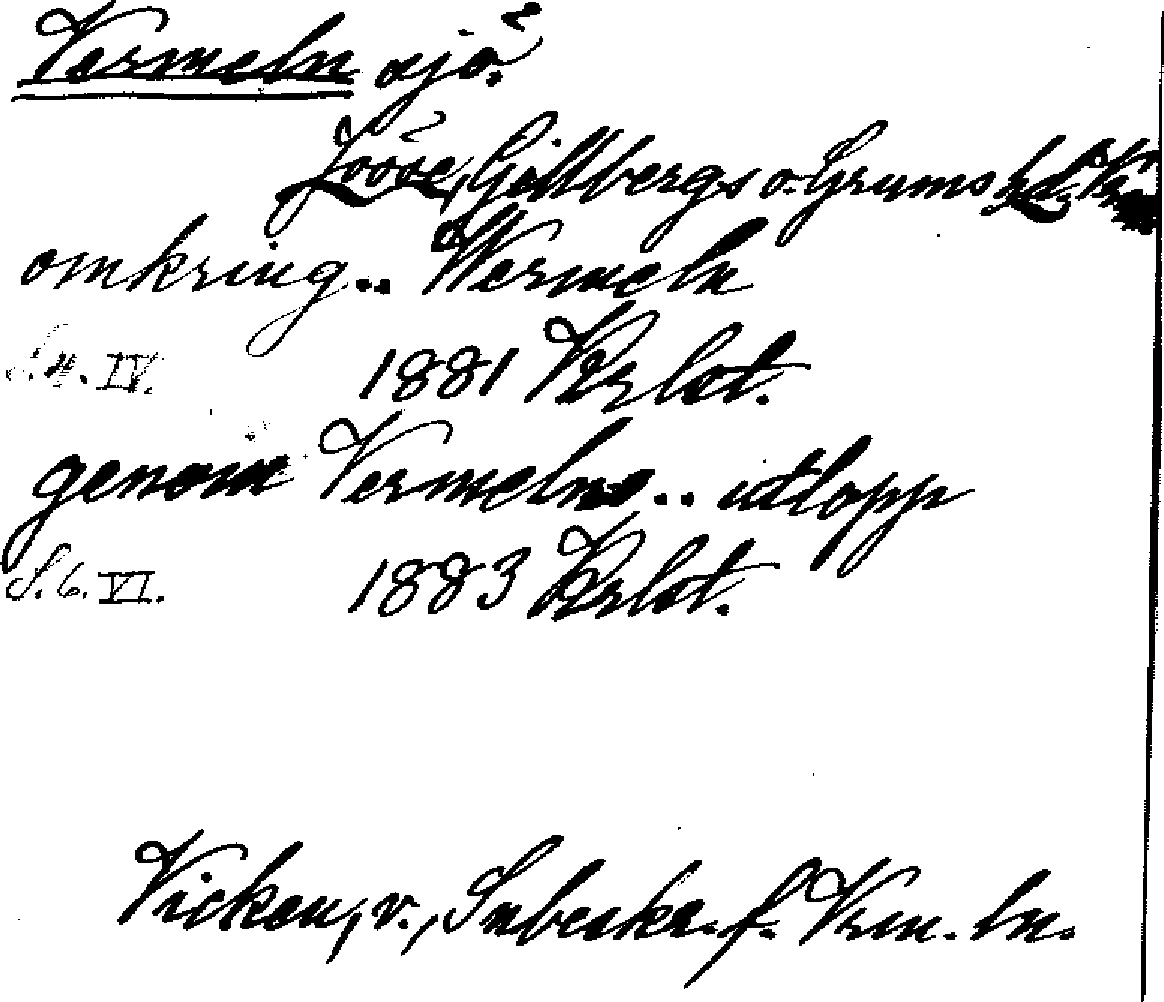 Vermeln sjö.
Jösse, Gillbergs o. Grums hd.
omkring .. Wermeln
S. 4. IV. 1881 Krlot.
genom Vermelns .. utlopp
S. 6. VI. 1883 Krlot.
Vicken, v., f. Vrm. ln.